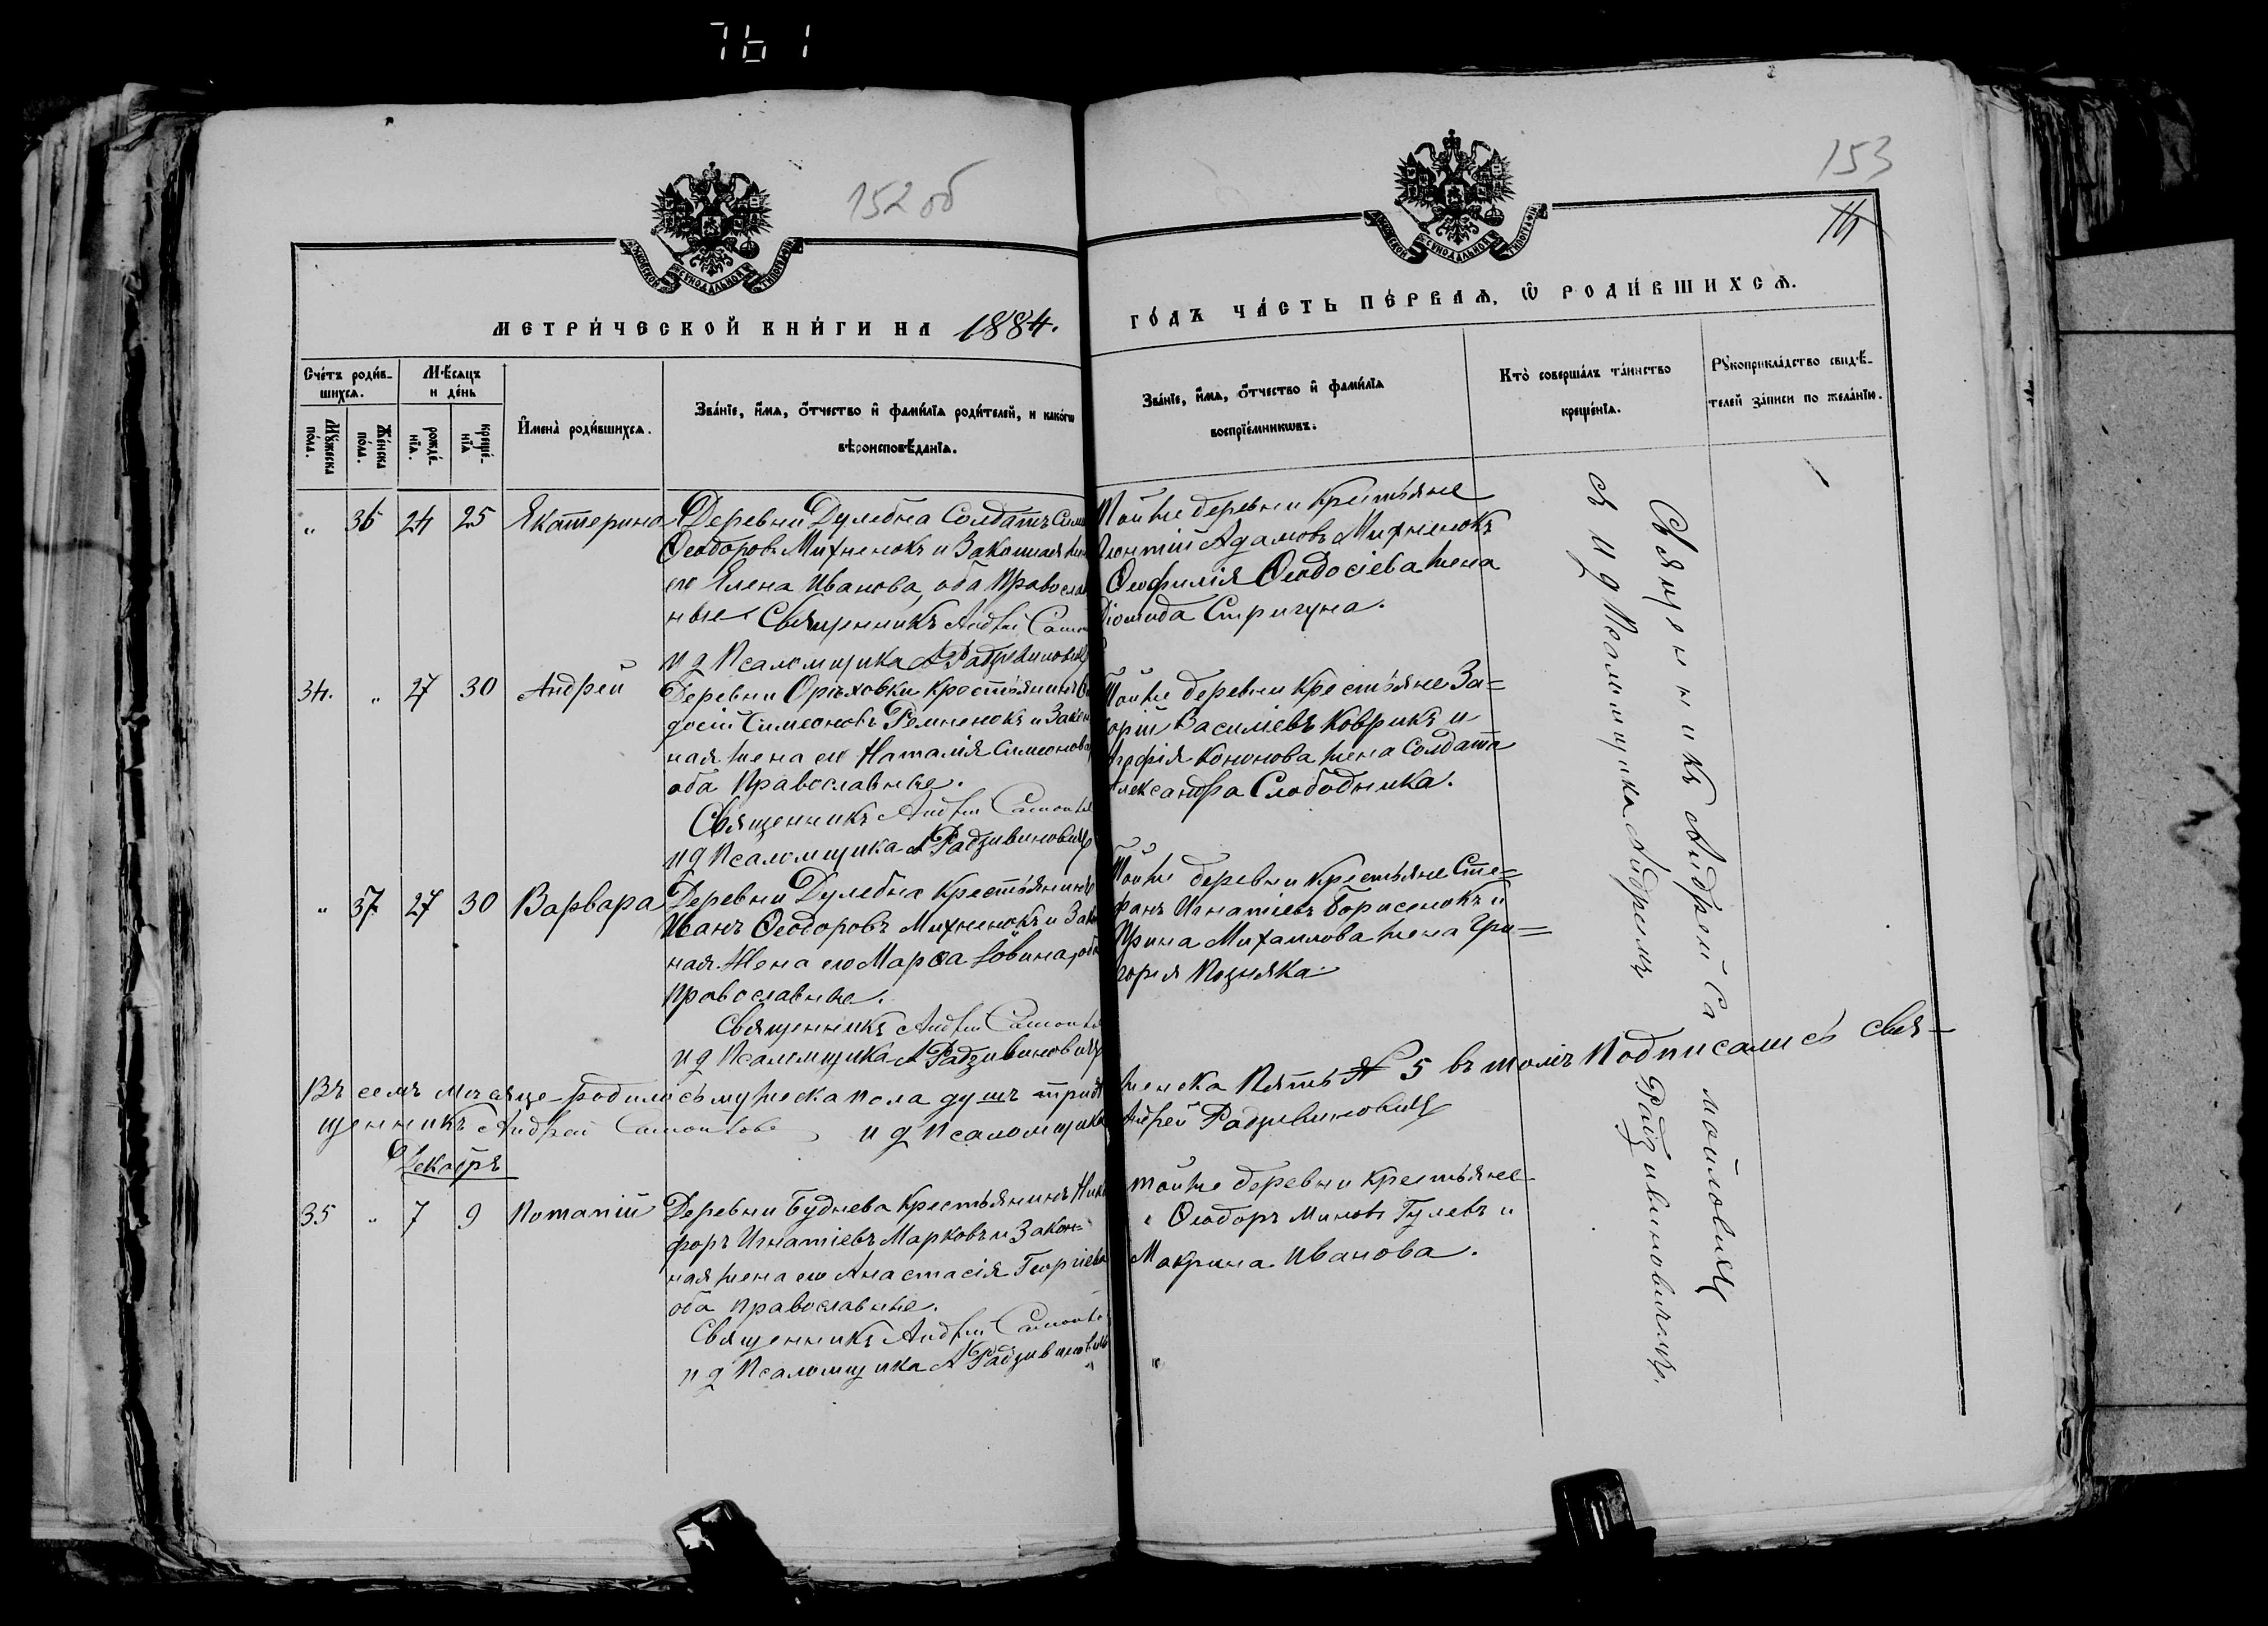 761
152 об
153
МОСКОВСКОЙ СѴНОДАЛЬНОЙ ТИПОГРАФІИ
МОСКОВСКОЙ СѴНОДАЛЬНОЙ ТИПОГРАФІИ
МЕТРИ́ЧЕСКОЙ КНИ́ГИ НА 1884.
ГО́ДЪ ЧА́СТЬ ПЕ́РВАѦ, Ѡ҆ РОДИ́ВШИХСѦ.
Сче́тъ роди́в-
шихсѧ.
Мꙋ́жеска по́ла.
Же́нска по́ла.
Мѣ́сѧцъ
и де́нь
рожде́-
нїѧ.
креще́-
нїѧ
И҆мена̀ роди́вшихсѧ.
Зва́нїе, и҆́мѧ, ѻ҆́тчество и҆ фами́лїѧ роди́телей, и како́гѡ
вѣроисповѣ́данїѧ.
Зва́нїе, и҆́мѧ, ѻ҆́тчество и҆ фами́лїѧ
воспрїе́мникѡвъ.
Кто̀ соверша́лъ та́инство
креще́нїѧ.
Рꙋкоприкла́дство свидѣ́-
телей за́писи по жела́нїю.
" 36 24 25 Екатерина Деревни Дулебна Солдатъ Симе
Ѳеодоровъ Михненокъ и Законная жен
его Елена Иванова, оба Православ
ные Священникъ Андрей Самой
и д Псаломщика А Радзивиновичъ
Тойже деревни Крестьяне
Леонтій Адамовъ Михненокъ
Ѳеофилія Ѳеодосіева жена
Діомида Стригуна.
34. " 27 30 Андрей Деревни Орѣховки Крестьянинъ Ѳео
досій Симеоновъ Ремненокъ и Закон
ная жена его Наталія Симеонова,
оба Православные.
Священникъ Андрей Самойло
и д Псаломщика А Радзивиновичъ
Тойже деревни Крестьяне За=
харій Василіевъ Коврикъ и
Агафія Кононова жена Солдата
Александра Слободника.
" 37 27 30 Варвара Деревни Дулебна Крестьянинъ
Иванъ Ѳеодоровъ Михненокъ и Зако
ная Жена его Марѳа Іовина, оба
Православные.
Священникъ Андрей Самойло
и д Псаломщика А Радзивиновичъ
Тойже деревни Крестьяне Сте=
фанъ Игнатіевъ Борисенокъ и
Ирина Михаилова жена Гри=
горія Позняка.
Въ семъ мѣсяце родилось мужеска пола душъ три а женска Пять № 5 въ томъ Подписались Свя-
щенникъ Андрей Самойлов и д Псаломщика Андрей Радзивиновичъ
Декабрь
35 " 7 9 Потапій Деревни Буднева Крестьянинъ Ники
форъ Игнатіевъ Марковъ и Закон=
ная жена его Анастасія Георгіева
оба православные.
Священникъ Андрей Самойло
и д Псаломщика А Радзивинович
тойже деревни Крестьяне
Ѳеодоръ Миновъ Гулевъ и
Макрина Иванова.
Священникъ Андрей Самойловичъ
съ и д Псаломщика Андреемъ Радзивиновичемъ.